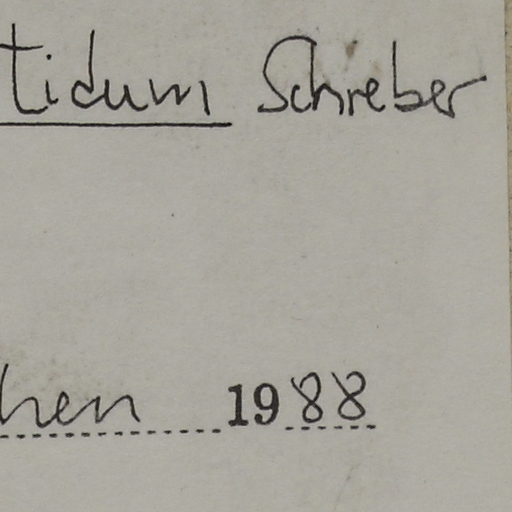 tidum Schreber
hen 1988